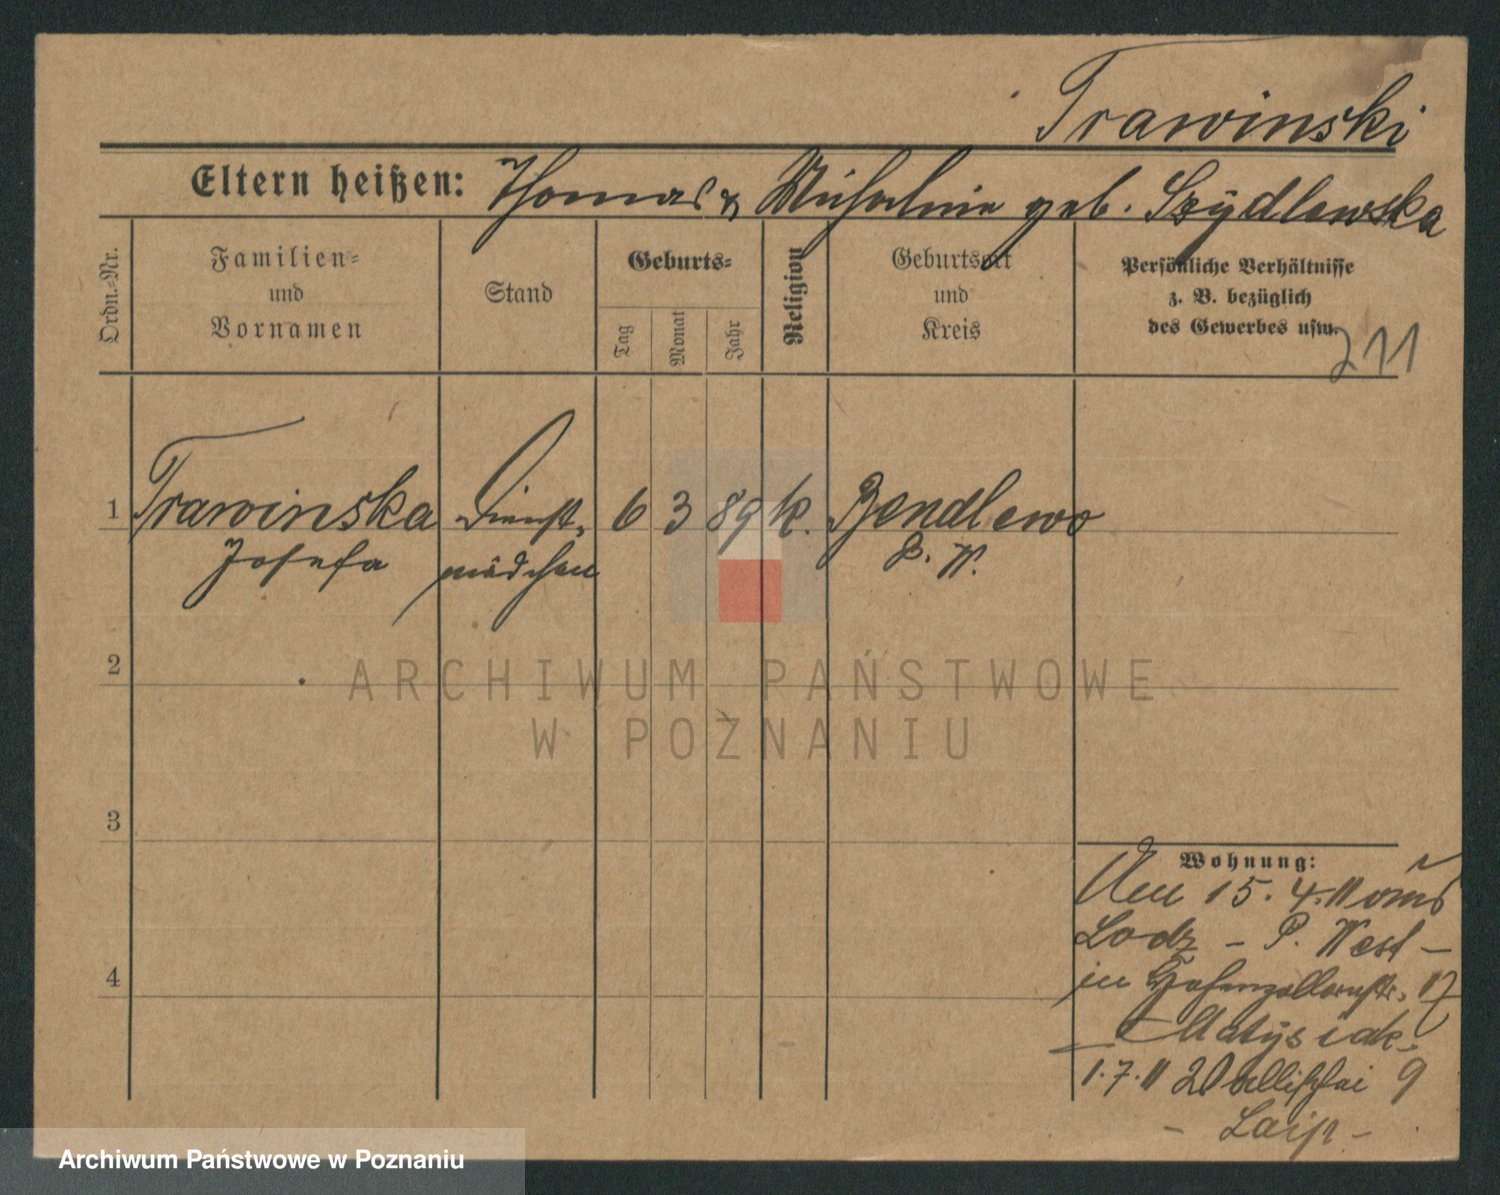 Trawinski
Eltern heißen: Thomas & geb. Szydlewska
Ordn.-Nr.
Familien-
und
Vornamen
Stand
Geburts-
Tag
Monat
Jahr
Religion
Geburtsort
und
Kreis
Persönliche Verhältnisse
z. B. bezüglich
des Gewerbes usw.
211
1 Trawinska Dienst- 6 3 89 k. Bendlewo
Josefa mädchen P. W.
2
3
4
Wohnung:
15. 4. 11
Lodz - P. West -
in Hohenzollernstr. 17
Matysiak.
1. 7. 11 Wallischei 9
ARCHIWUM PAŃSTWOWE
W POZNANIU
Archiwum Państwowe w Poznaniu